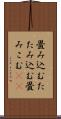 畳み込むた
たみ込む畳
みこむ